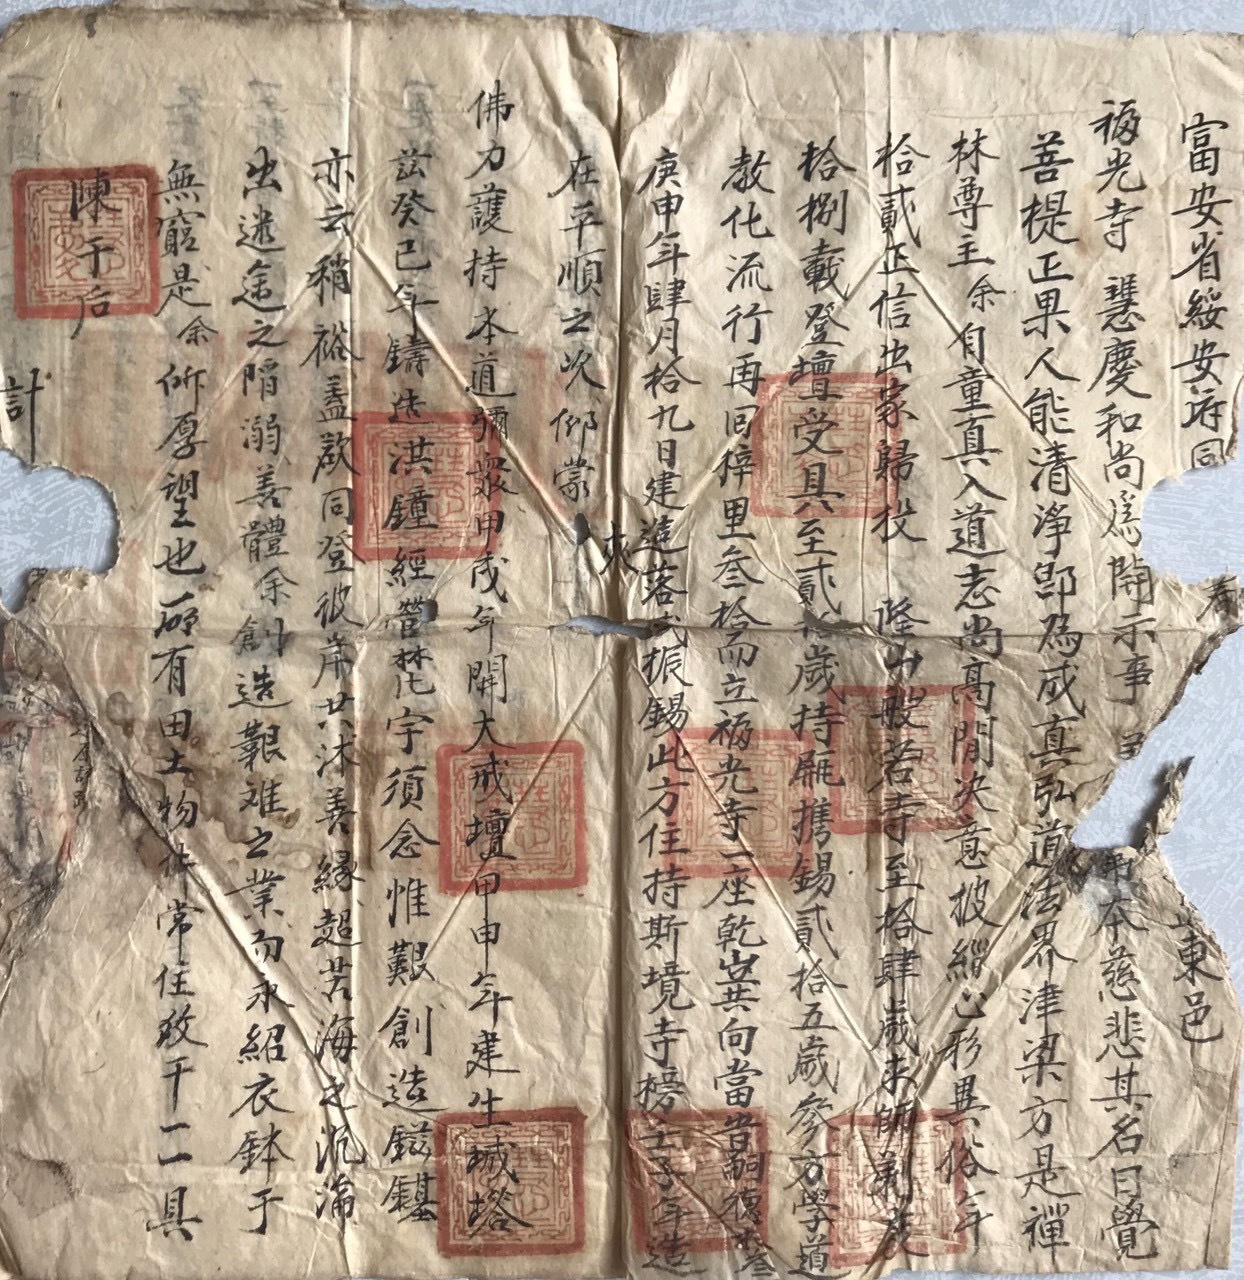 富安省綏安府同
春
東邑
福光寺慧慶和尚為開示事
弟本慈悲其名曰覺
菩提正果人能清淨即為成真弘道法界津梁方是禪
林尊主余自童真入道志尚高閒决意披緇心形異俗年
拾貳正信出家歸投 隆山般若寺至拾肆歲求師剃度
拾捌載登壇受具至貳歲持瓶携錫貳拾五歲參方學道
教化流行再回梓里叁拾而立福光寺一座乾巽向當嗣德叁
庚申年肆月拾九日建造落成振錫此方住持斯境寺榜壬子年造
夾
在平順之次仰蒙
佛力護持本道彌衆甲戌年開大戒壇甲申年建生塔
茲癸巳年鑄造洪鐘經營梵宇須念惟艱創造鎡錤
亦云稍裕蓋欲同登彼岸共沐善緣超苦海之沉淪
出迷途之陷溺善體余創造艱难之業而永紹衣鉢于
無窮是余所厚望也所有田土物件常住致干一一具
陳于后
計